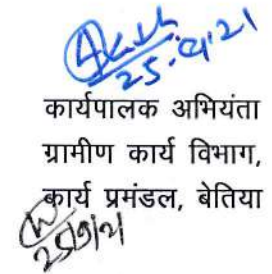 25.9.21
कार्यपालक अभियंता
ग्रामीण कार्य विभाग,
कार्य प्रमंडल, बेतिया
25/9/21